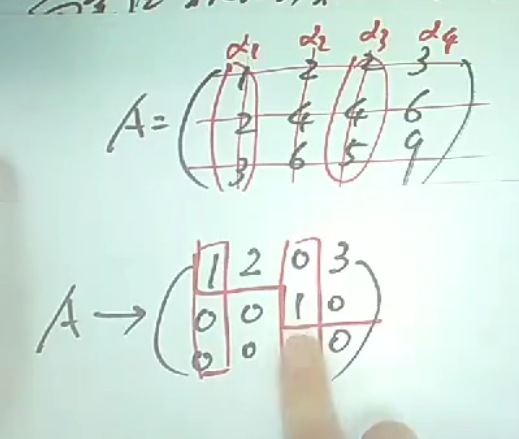 α1 α2 α3 α4
1 2 2 3
A= 2 4 4 6
3 6 5 9
1 2 0 3
A → 0 0 1 0
0 0 0